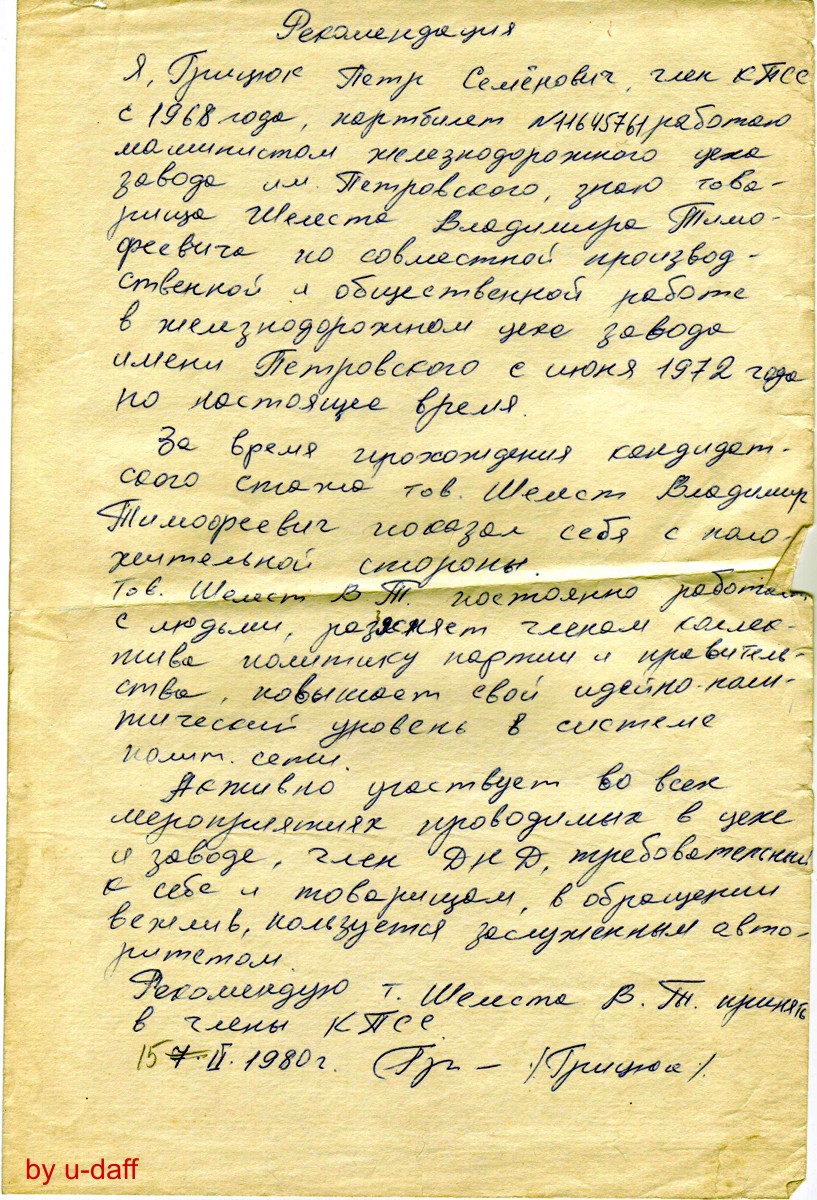 Рекомендация
Я, Грицюк Петр Семёнович, член КПСС
с 1968 года, партбилет №11645761, работаю
машинистом железнодорожного цеха
завода им. Петровского, знаю това-
рища Шелеста Владимира Тимо-
феевича по совместной производ-
ственной и общественной работе
в железнодорожном цехе завода
имени Петровского с июня 1972 года
по настоящее время.
За время прохождения кандидат-
ского стажа тов. Шелест Владимир
Тимофеевич показал себя с поло-
жительной стороны.
Тов. Шелест В.Т. постоянно работает
с людьми, разъясняет членам коллек-
тива политику партии и правитель-
ства, повышает свой идейно-поли-
тический уровень в системе
полит. сети.
Активно участвует во всех
мероприятиях проводимых в цехе
и заводе, член ДНД, требовательный
к себе и товарищам, в обращении
вежлив, пользуется заслуженным авто-
ритетом
Рекомендую т. Шелеста В. Т. принять
в члены КПСС
15 7. II. 1980г. /Грицюк/.
by u-daff